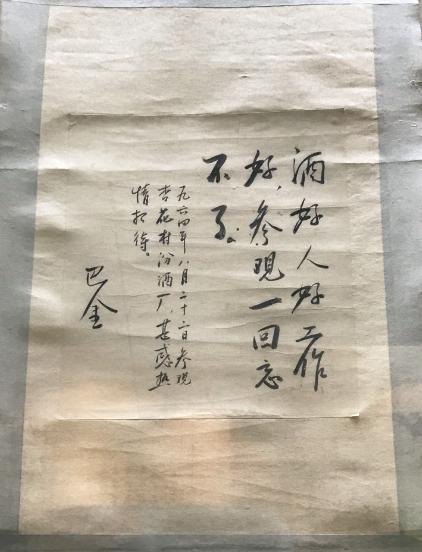 酒好人好工作
好，参观一回忘
不了。
一九六四年八月二十二日参观
杏花村汾酒厂，甚感热
情招待。
巴金